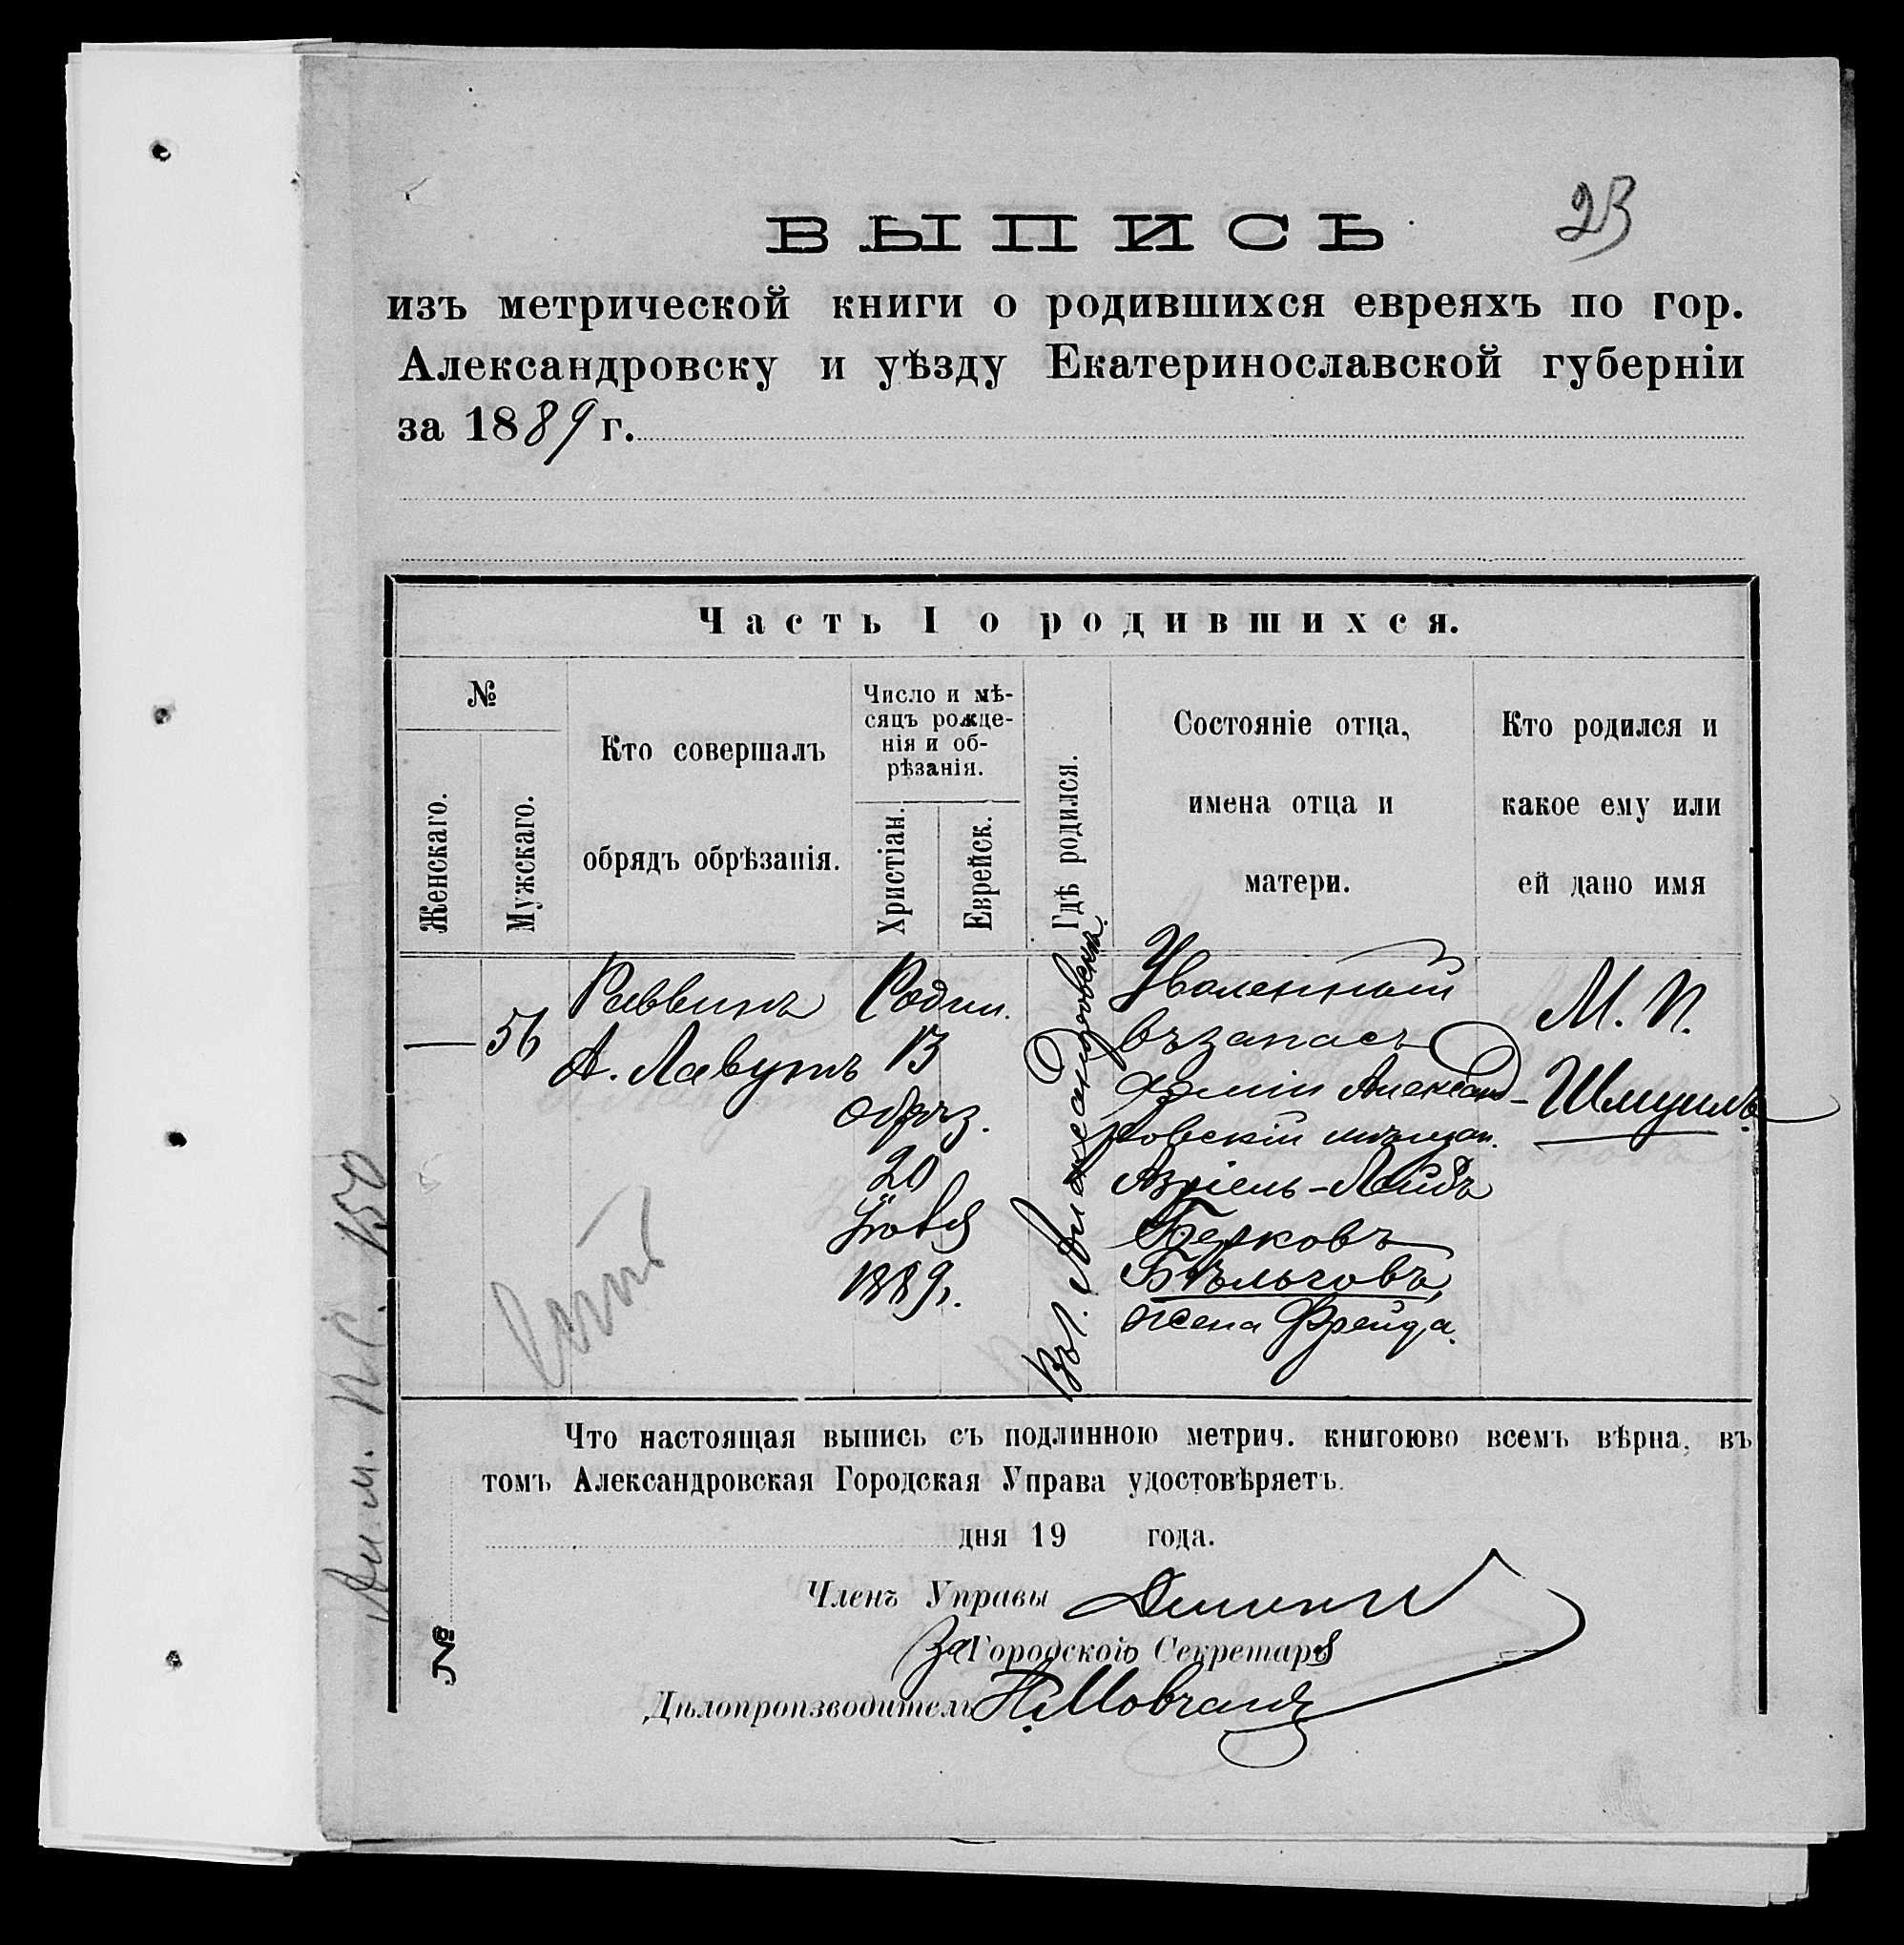 23
ВЫПИСЬ
изъ метрической книги о родившихся евреяхъ по гор.
Александровску и уѣзду Екатеринославской губерніи
за 1889 г.
Часть I о родившихся.
№
Женскаго.
Мужскаго.
Кто совершалъ
обрядъ обрѣзанія.
Число и мѣ-
сяцъ рожде-
нія и об-
рѣзанія.
Христіан.
Еврейск.
Гдѣ родился.
Состояніе отца,
имена отца и
матери.
Кто родился и
какое ему или
ей дано имя
—
56
Раввинъ
А. Лавутъ
Родил.
13
обрѣз.
20
1889г.
Въ г. Александровскѣ.
Уволенный
въ запасъ
арміи Александ-
ровскій мѣщан.
Азріель-Лейбъ
Берковъ
Бѣльговъ,
жена Фрейда.
М. П.
Шмуилъ.
Что настоящая выпись съ подлинною метрич. книгоюво всемъ вѣрна, въ
томъ Александровская Городская Управа удостовѣряетъ.
дня 19 года.
Членъ Управы
За Городского Секретаря
Дѣлопроизводитель Н. Мовчанъ
№